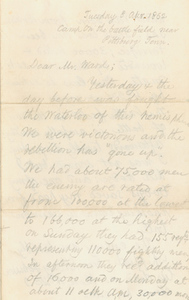 Tuesday 8 Apr. 1862
Camp on the battle field, near
Pittsburg Tenn.
Dear Mr. Ward;
Yesterday & the
day before was fought
the Waterloo of this Hemisph
We were victorious and the
rebellion has "gone up."
We had about 75,000 men
the enemy are rated at
from 100,000 at the lowest
to 166,000 at the highest
on Sunday they had 155 regts
representing 110,000 fighting men
In afternoon they had addition
of 16,000 and on Monday at
about 11 oclk Apr. 30,000 m